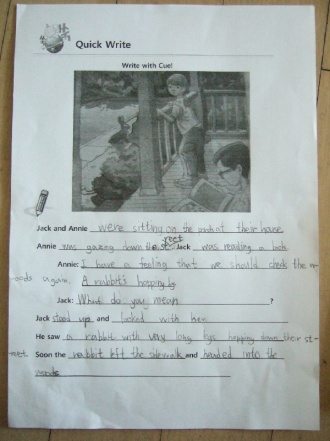 Quick Write
Write with Cue!
Jack and Annie were sitting on the porch at their house
Annie was gazing down the street Jack was reading a book
Annie: I have a feeling that we should check the wo-
oods again. A rabbit's hopping by
Jack: What do you mean ?
Jack stood up and looked with her
He saw a rabbit with very long legs hopping down their st-
reet. Soon the rabbit left the sidewalk and headed into the
woods